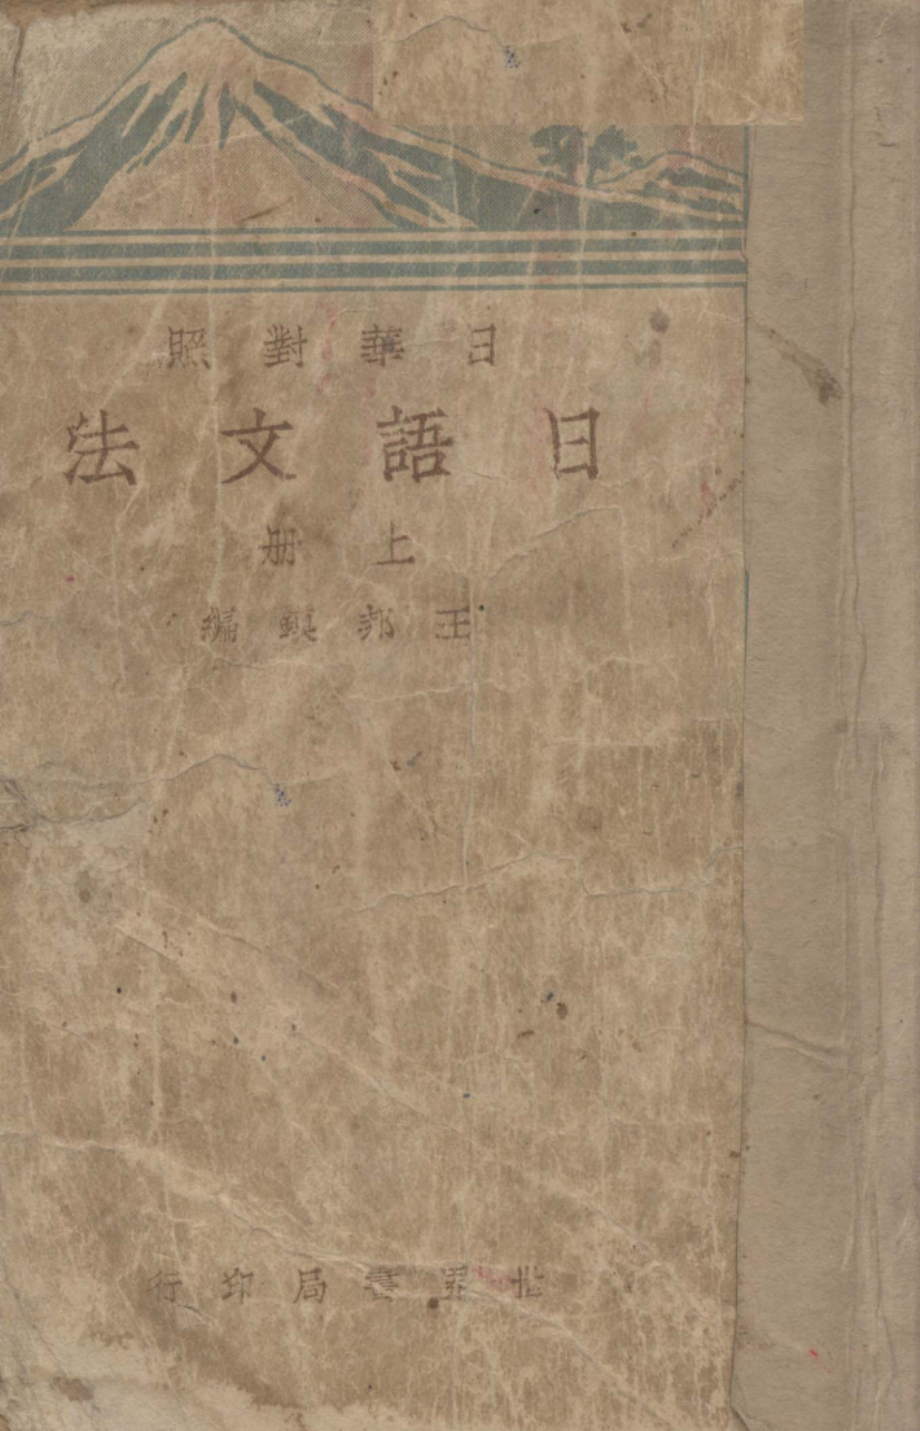 日華對照
日語文法
上册
王邦鎮編
世界書局印行